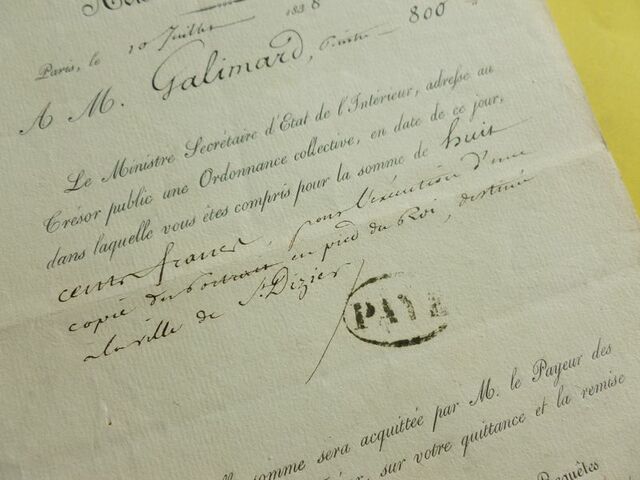 Paris, le 10 Juillet 1838
800
A M. Galimard, Peintre
Le Ministre Secrétaire d'Etat de l'Intérieur, adresse au
Trésor public une Ordonnance collective, en date de ce jour,
dans laquelle vous êtes compris pour la somme de huit
cents francs, pour l'exécution d'une
copie du Portrait en pied du Roi, destinée
à la ville de St. Dizier
PAYÉ
somme sera acquittée par M. le Payeur des
sur votre quittance et la remise